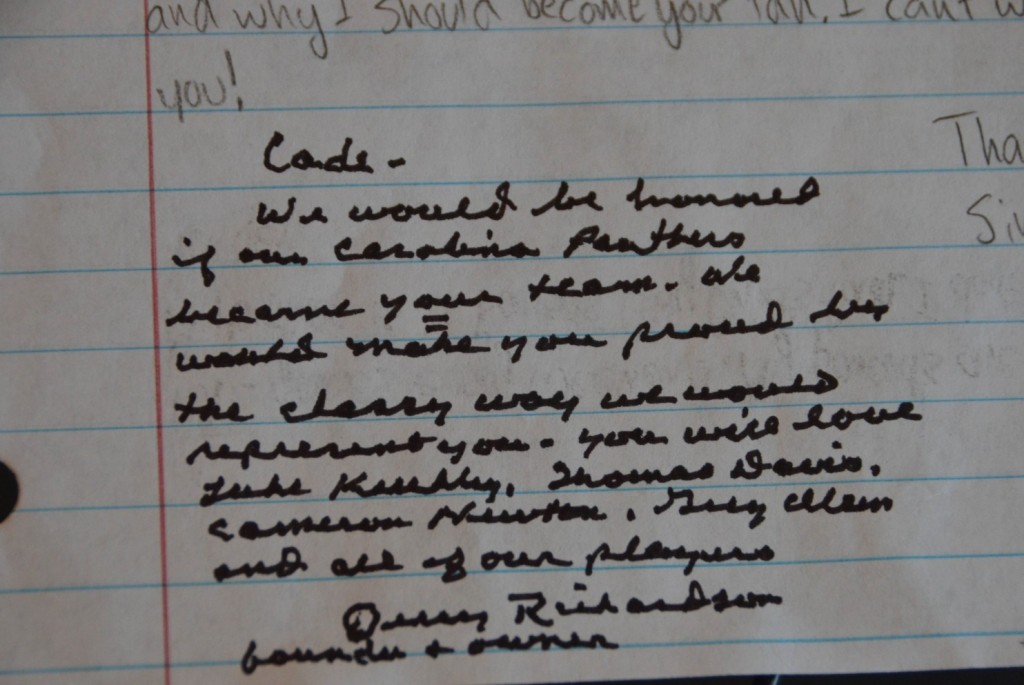 and why I should become your fan. I can't w
you!
Tha
Cade -
We would be honored
Si
if our Carolina Panthers
became your team. We
would make you proud by
the classy way we would
represent you. You will love
Luke Kuechly, Thomas Davis,
Cameron Newton, Greg Olsen
and all of our players
Jerry Richardson
founder + owner